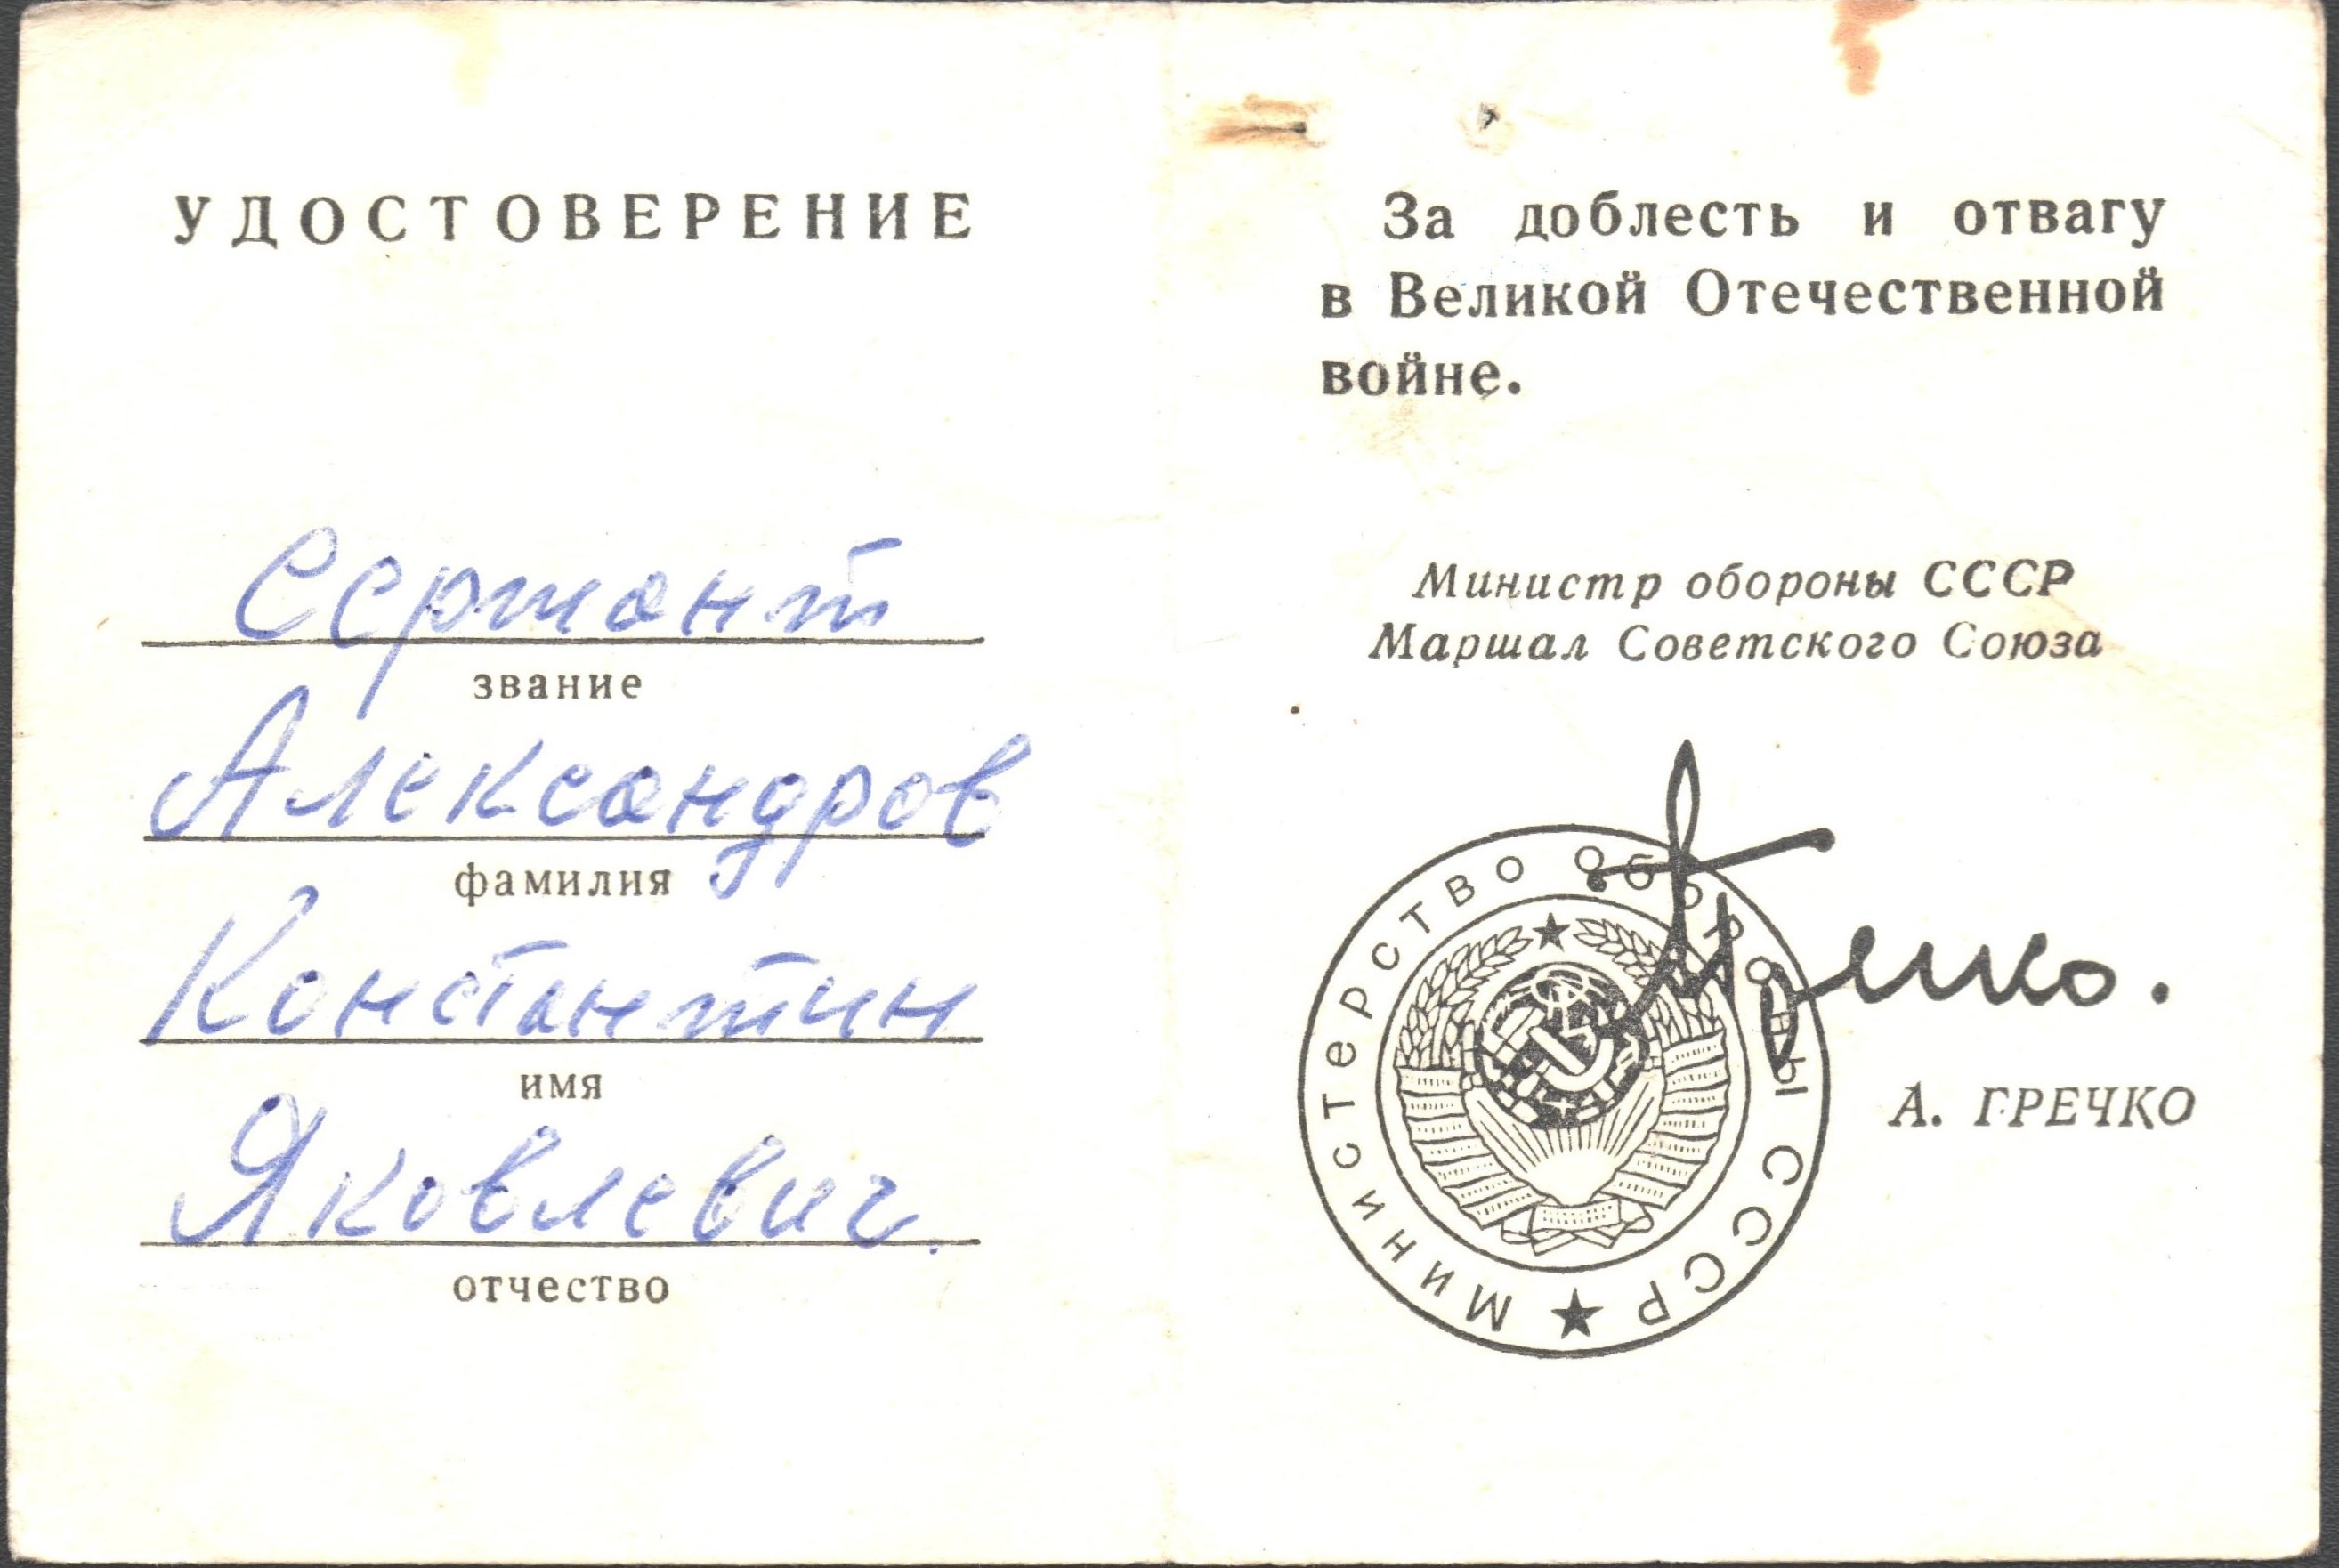 УДОСТОВЕРЕНИЕ
Сержант
звание
Александров
фамилия
Константин
имя
Яковлевич.
отчество
За доблесть и отвагу
в Великой Отечественной
войне.
Министр обороны СССР
Маршал Советского Союза
Гречко.
А. ГРЕЧКО
МИНИСТЕРСТВО ОБОРОНЫ СССР